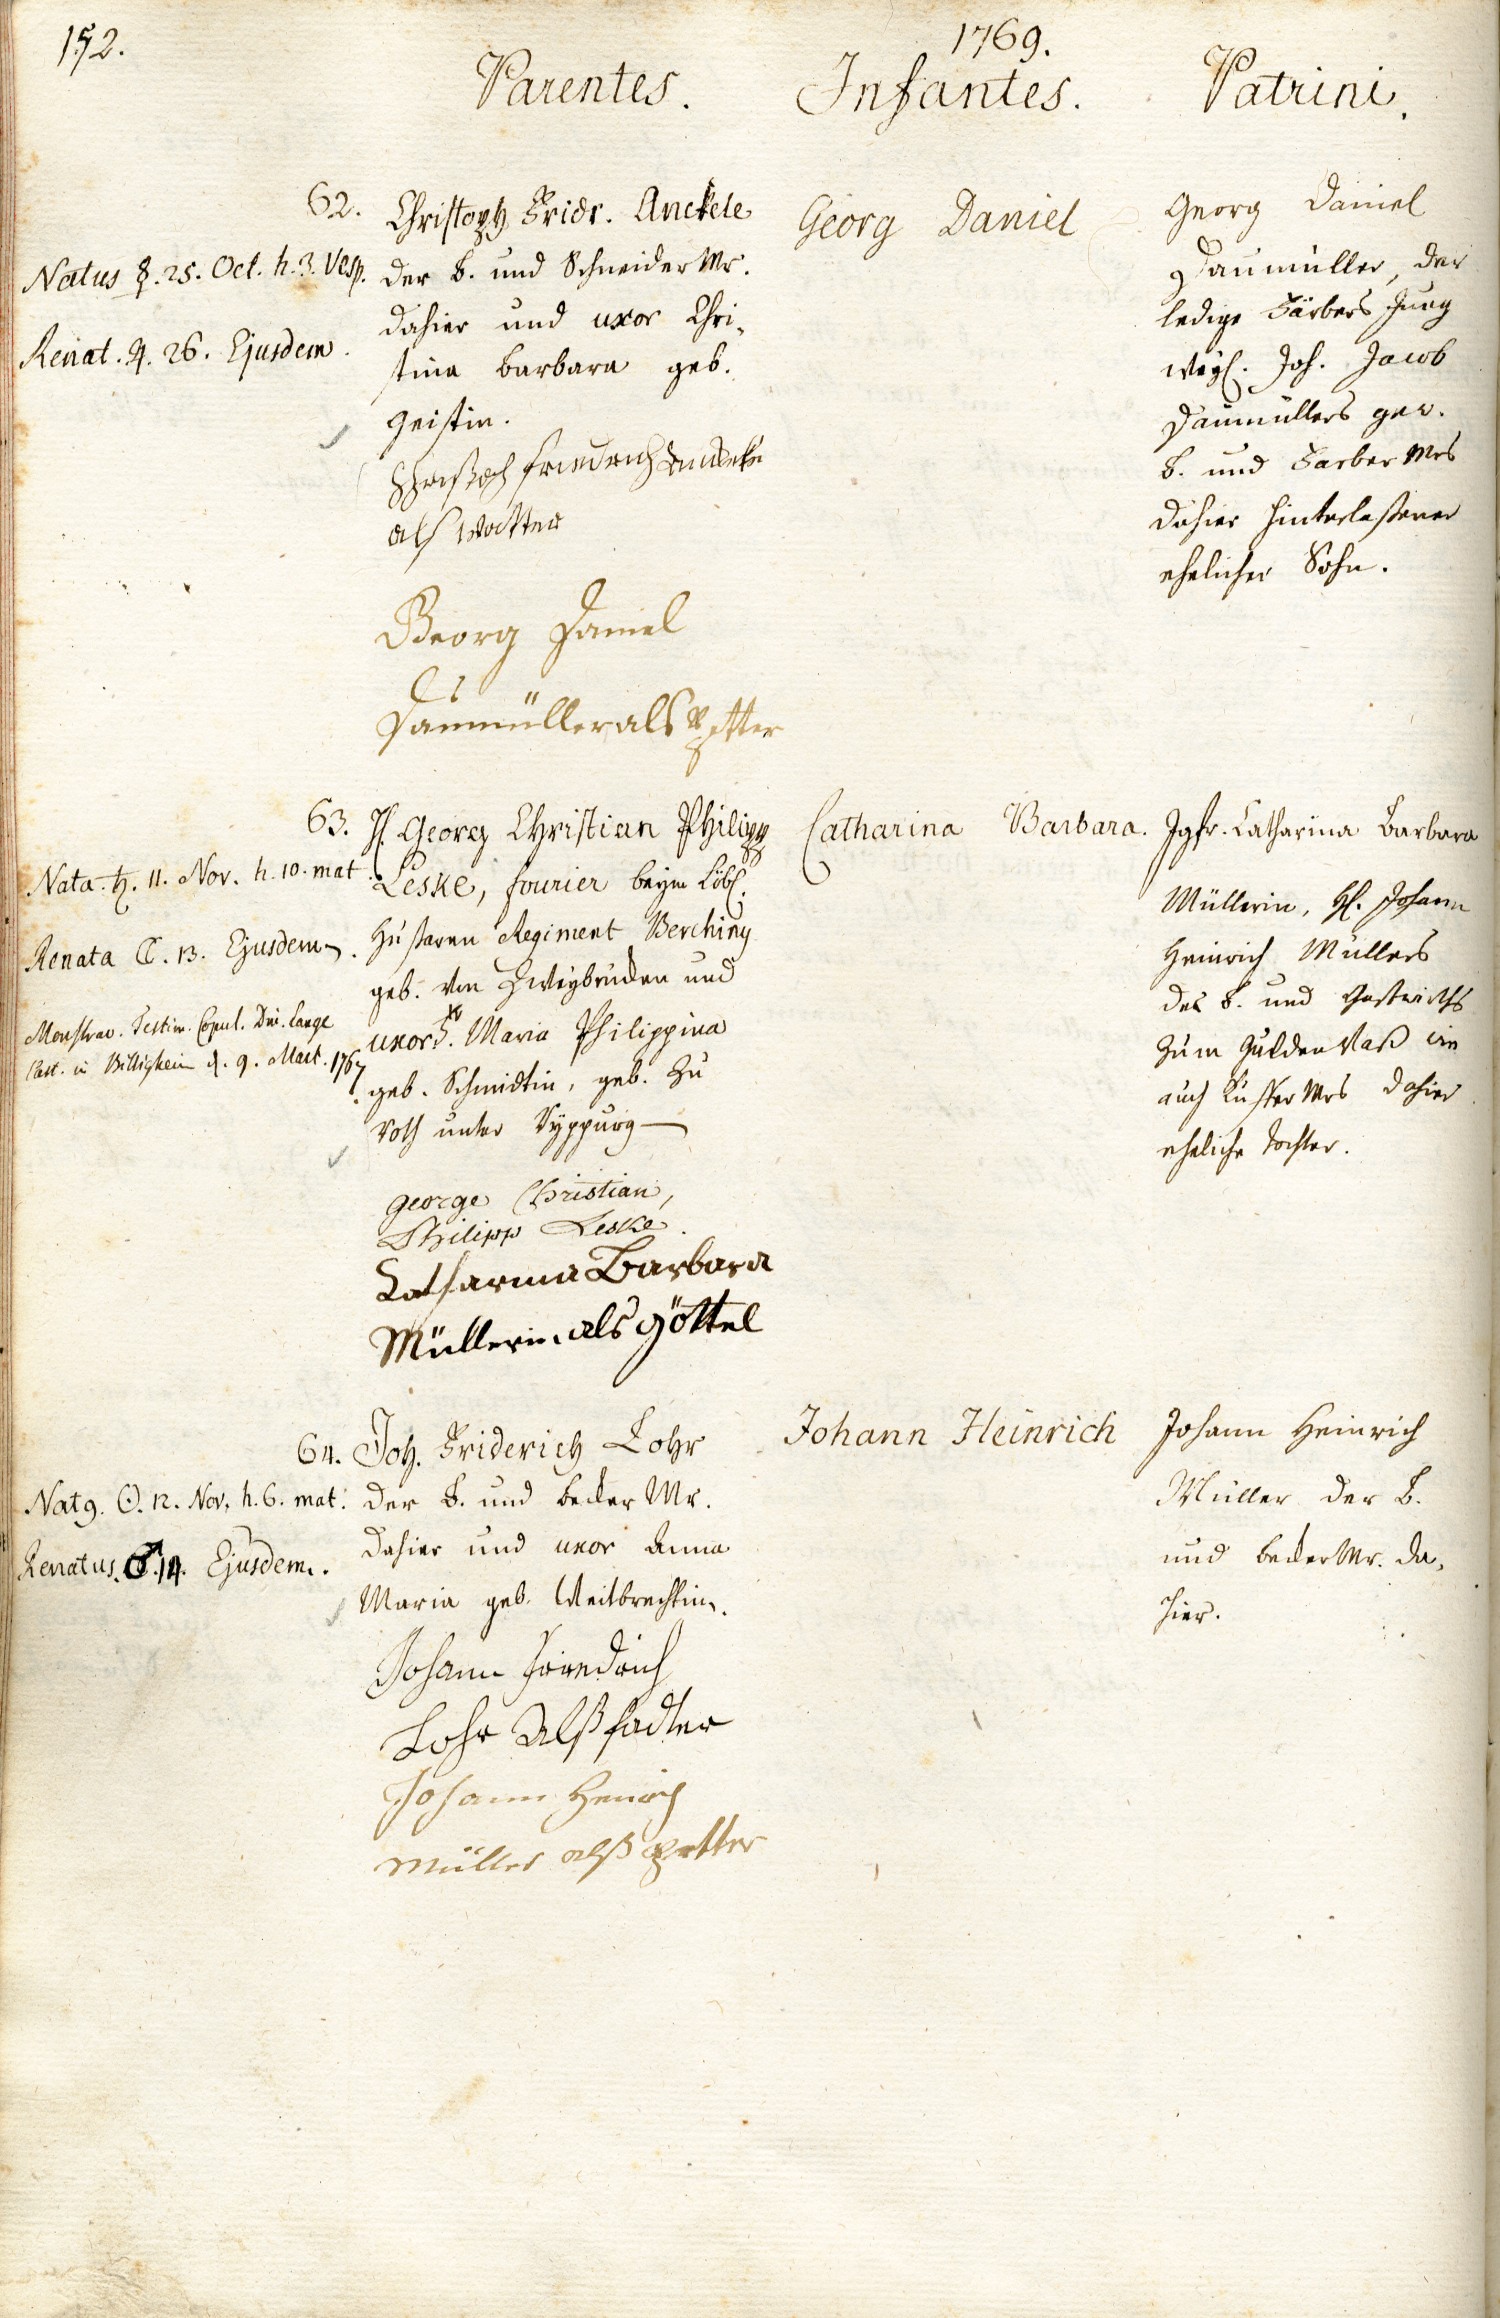 152.
1769.
Parentes. Infantes. Patrini.
62.
Natus ☿. 25. Oct. h. 3. Vesp.
Renat. ♃. 26. Ejusdem.
Christoph Fridr. Anckele
der B. und Schneider Mr.
dahier und uxor Chri-
stina Barbara geb.
Geistin.
Christoph Friedrich Anckele
als Vatter
Georg Daniel
Daumüller als Petter
Georg Daniel
Georg Daniel
Daumüller, der
ledige Färbers Jung
weyl. Joh. Jacob
Daumüllers gew.
B. und Färber Mrs
dahier hinterlaßener
ehelicher Sohn.
63.
Nata ♄. 11. Nov. h. 10. mat.
Renata ☾. 13. Ejusdem.
Monstrav. Testim. Copul. Dni. Lange
Past. in Billigheim d. 9. Mart. 1767
H. Georg Christian Philipp
Leske, fourier beym Löbl.
Hußaren Regiment Berchiny
geb. von Zweybrücken und
uxor. Maria Philippina
geb. Schmidtin, geb. zu
Roth unter Ryppurg
George Christian,
Philipp Leske.
Catharina Barbara
Müllerin als Göttel
Catharina Barbara.
Jgfr. Catharina Barbara
Müllerin, H. Johann
Heinrich Müllers
des B. und Gastwirths
zum Gulden Vaß wie
auch Küffer Mrs dahier
eheliche Tochter.
64.
Nat9. ☉. 12. Nov. h. 6. mat.
Renatus. ♂. 14. Ejusdem.
Joh. Friderich Lohr
der B. und Becker Mr.
dahier und uxor Anna
Maria geb. Weitbrechtin.
Johann Friedrich
Lohr Alß fadter
Johann Henrich
Müller alß petter
Johann Heinrich
Johann Heinrich
Müller der B.
und Becker Mr. da-
hier.